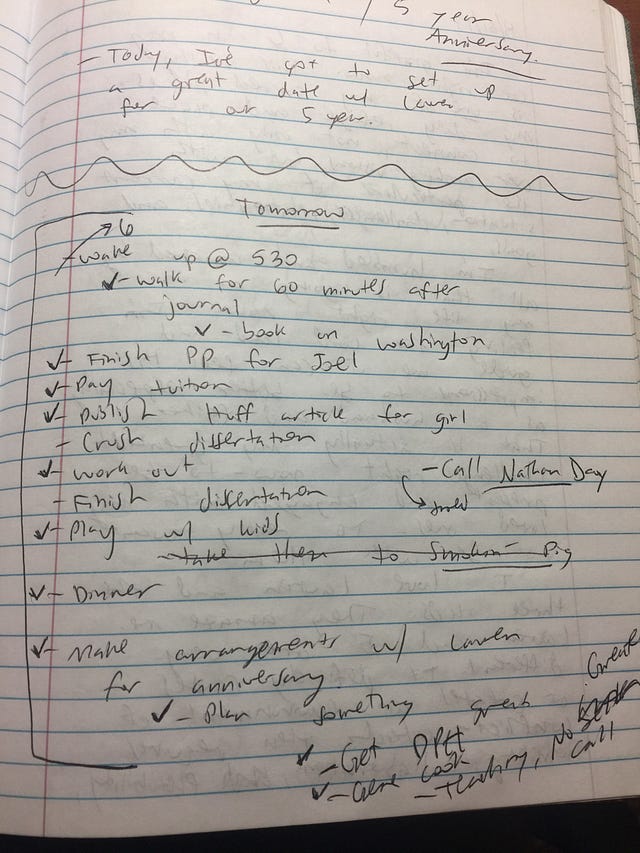 / 5 year
Anniversary.
- Today, I've got to set up
a great date w/ Lauren
for our 5 year.
Tomorrow
6
- wake up @ 530
✓ - walk for 60 minutes after
journal
✓ - book on Washington
✓ - Finish PP for Joel
✓ - Pay tuition
✓ - Publish Huff article for girl
- Crush dissertation
✓ - work out
- Call Nathan Day
- Finish dissertation
tried
✓ - Play w/ kids
- take them to Smokin Pig
✓ - Dinner
✓ - Make arrangements w/ Lauren
for anniversary.
✓ - Plan something great
✓ - Get
✓ - Gene Cook
- Teaching, No
Great
call